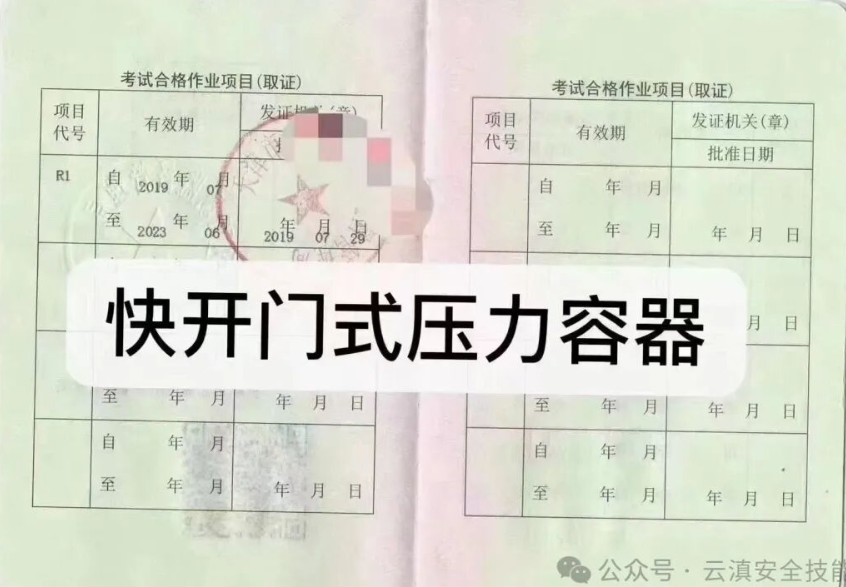 考试合格作业项目(取证)
项目代号
有效期
发证机关(章)
R1
自 2019 年 07 月
至 2023 年 06 月
2019 年 07 月 29 日
至 年 月 年 月 日
自 年 月
至 年 月 年 月 日
考试合格作业项目(取证)
项目代号
有效期
发证机关(章)
批准日期
自 年 月
至 年 月 年 月 日
月 日
至 年 月 年 月 日
自 年 月
至 年 月 年 月 日
快开门式压力容器
公众号 · 云滇安全技能